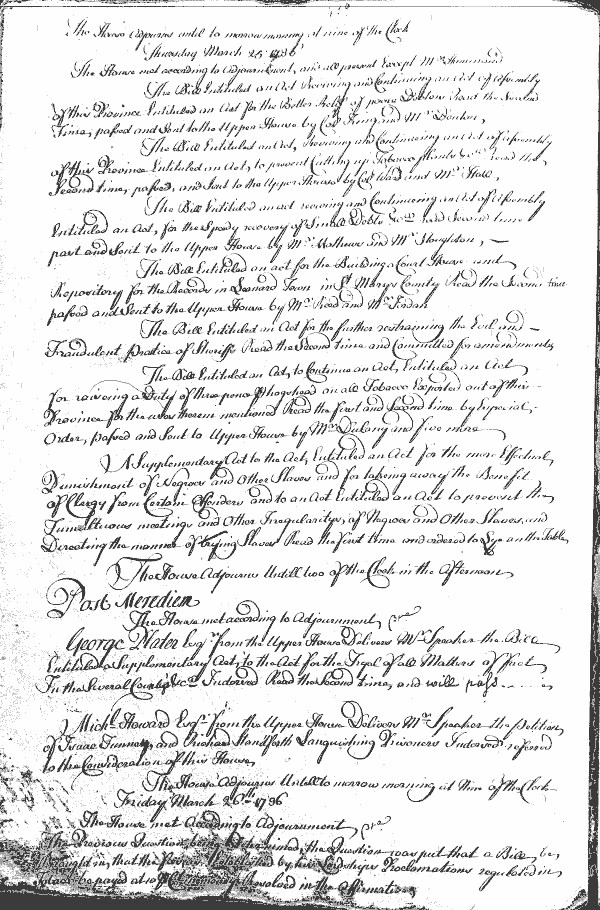 The House Adjourns until to morrow morning at nine of the Clock
Thursday March 25th 1736
The House met according to Adjournment, and all present Except Mr.
The Bill Entituled an Act Reviving and Continuing an Act of Assembly
of this Province Entituled an Act for the Better Relief of poore Debtors Read the Second
Time, passed and Sent to the Upper House by Coll King and Mr
The Bill Entituled an Act, Reviving and Continuing an Act of Assembly
of this Province Entituled an Act, to prevent Cutting up Tobacco plants &ca read the
Second time, passed, and Sent to the Upper House by Coll Ward and Mr Hall,
The Bill Entituled an act reviving and Continuing an Act of Assembly
Entituled an Act, for the Speedy recovery of Small Debts &ca read Second time
past and Sent to the Upper House by Mr Mathews and Mr Stoughton,
The Bill Entituled an act for the Building a Court House and
Repository for the Records in Leonard Town in St Marys County Read the Second time
passed and Sent to the Upper House by Mr Read and Mr Jordan
The Bill Entituled an Act for the further restraining the Evil and
Fraudulent practice of Sheriffs Read the Second time and Committed for amendments
The Bill Entituled an Act, to Continue an Act, Entituled an Act
for raising a Duty of three pence hogshead on all Tobacco Exported out of this
Province for the uses therein mentioned Read the first and Second time by Especial
Order, passed and Sent to Upper House by Mr Dulany and five more
A Supplementary Act to the Act, Entituled an Act for the more Effectual
Punishment of Negroes and Other Slaves and for takeing away the Benefit
of Clergy from Certain Offenders and to an Act Entituled an Act to prevent the
Tumultuous meetings and Other Irregularitys, of Negroes and Other Slaves, and
Directing the manner of trying Slaves Read the first time and ordered to Lye on the Table,
The House Adjourns Untill two of the Clock in the Afternoon
Post Meredien
The House met according to Adjournment,
George Plater Esqr from the Upper House Delivers Mr Speaker the Bill
Entituled a Supplementary Act, to the Act for the Tryal of all Matters of fact
In the Several Countys &ca Indorsed Read the Second time, and will pass
Michl Howard Esqr from the Upper House Delivers Mr Speaker the petition
of Isaac and Richard Handforth Languishing Prisoners Indorsed referred
to the Consideration of this House,
The House Adjourns Untill to morrow morning at Nine of the Clock
Friday March 26th 1736
The House met According to Adjournment,
The Previous Question, being Determined, the Question was put that a Bill be
brought in, that the Established by his Lordships Proclamations regulated in
be payed at Resolved in the Affirmative